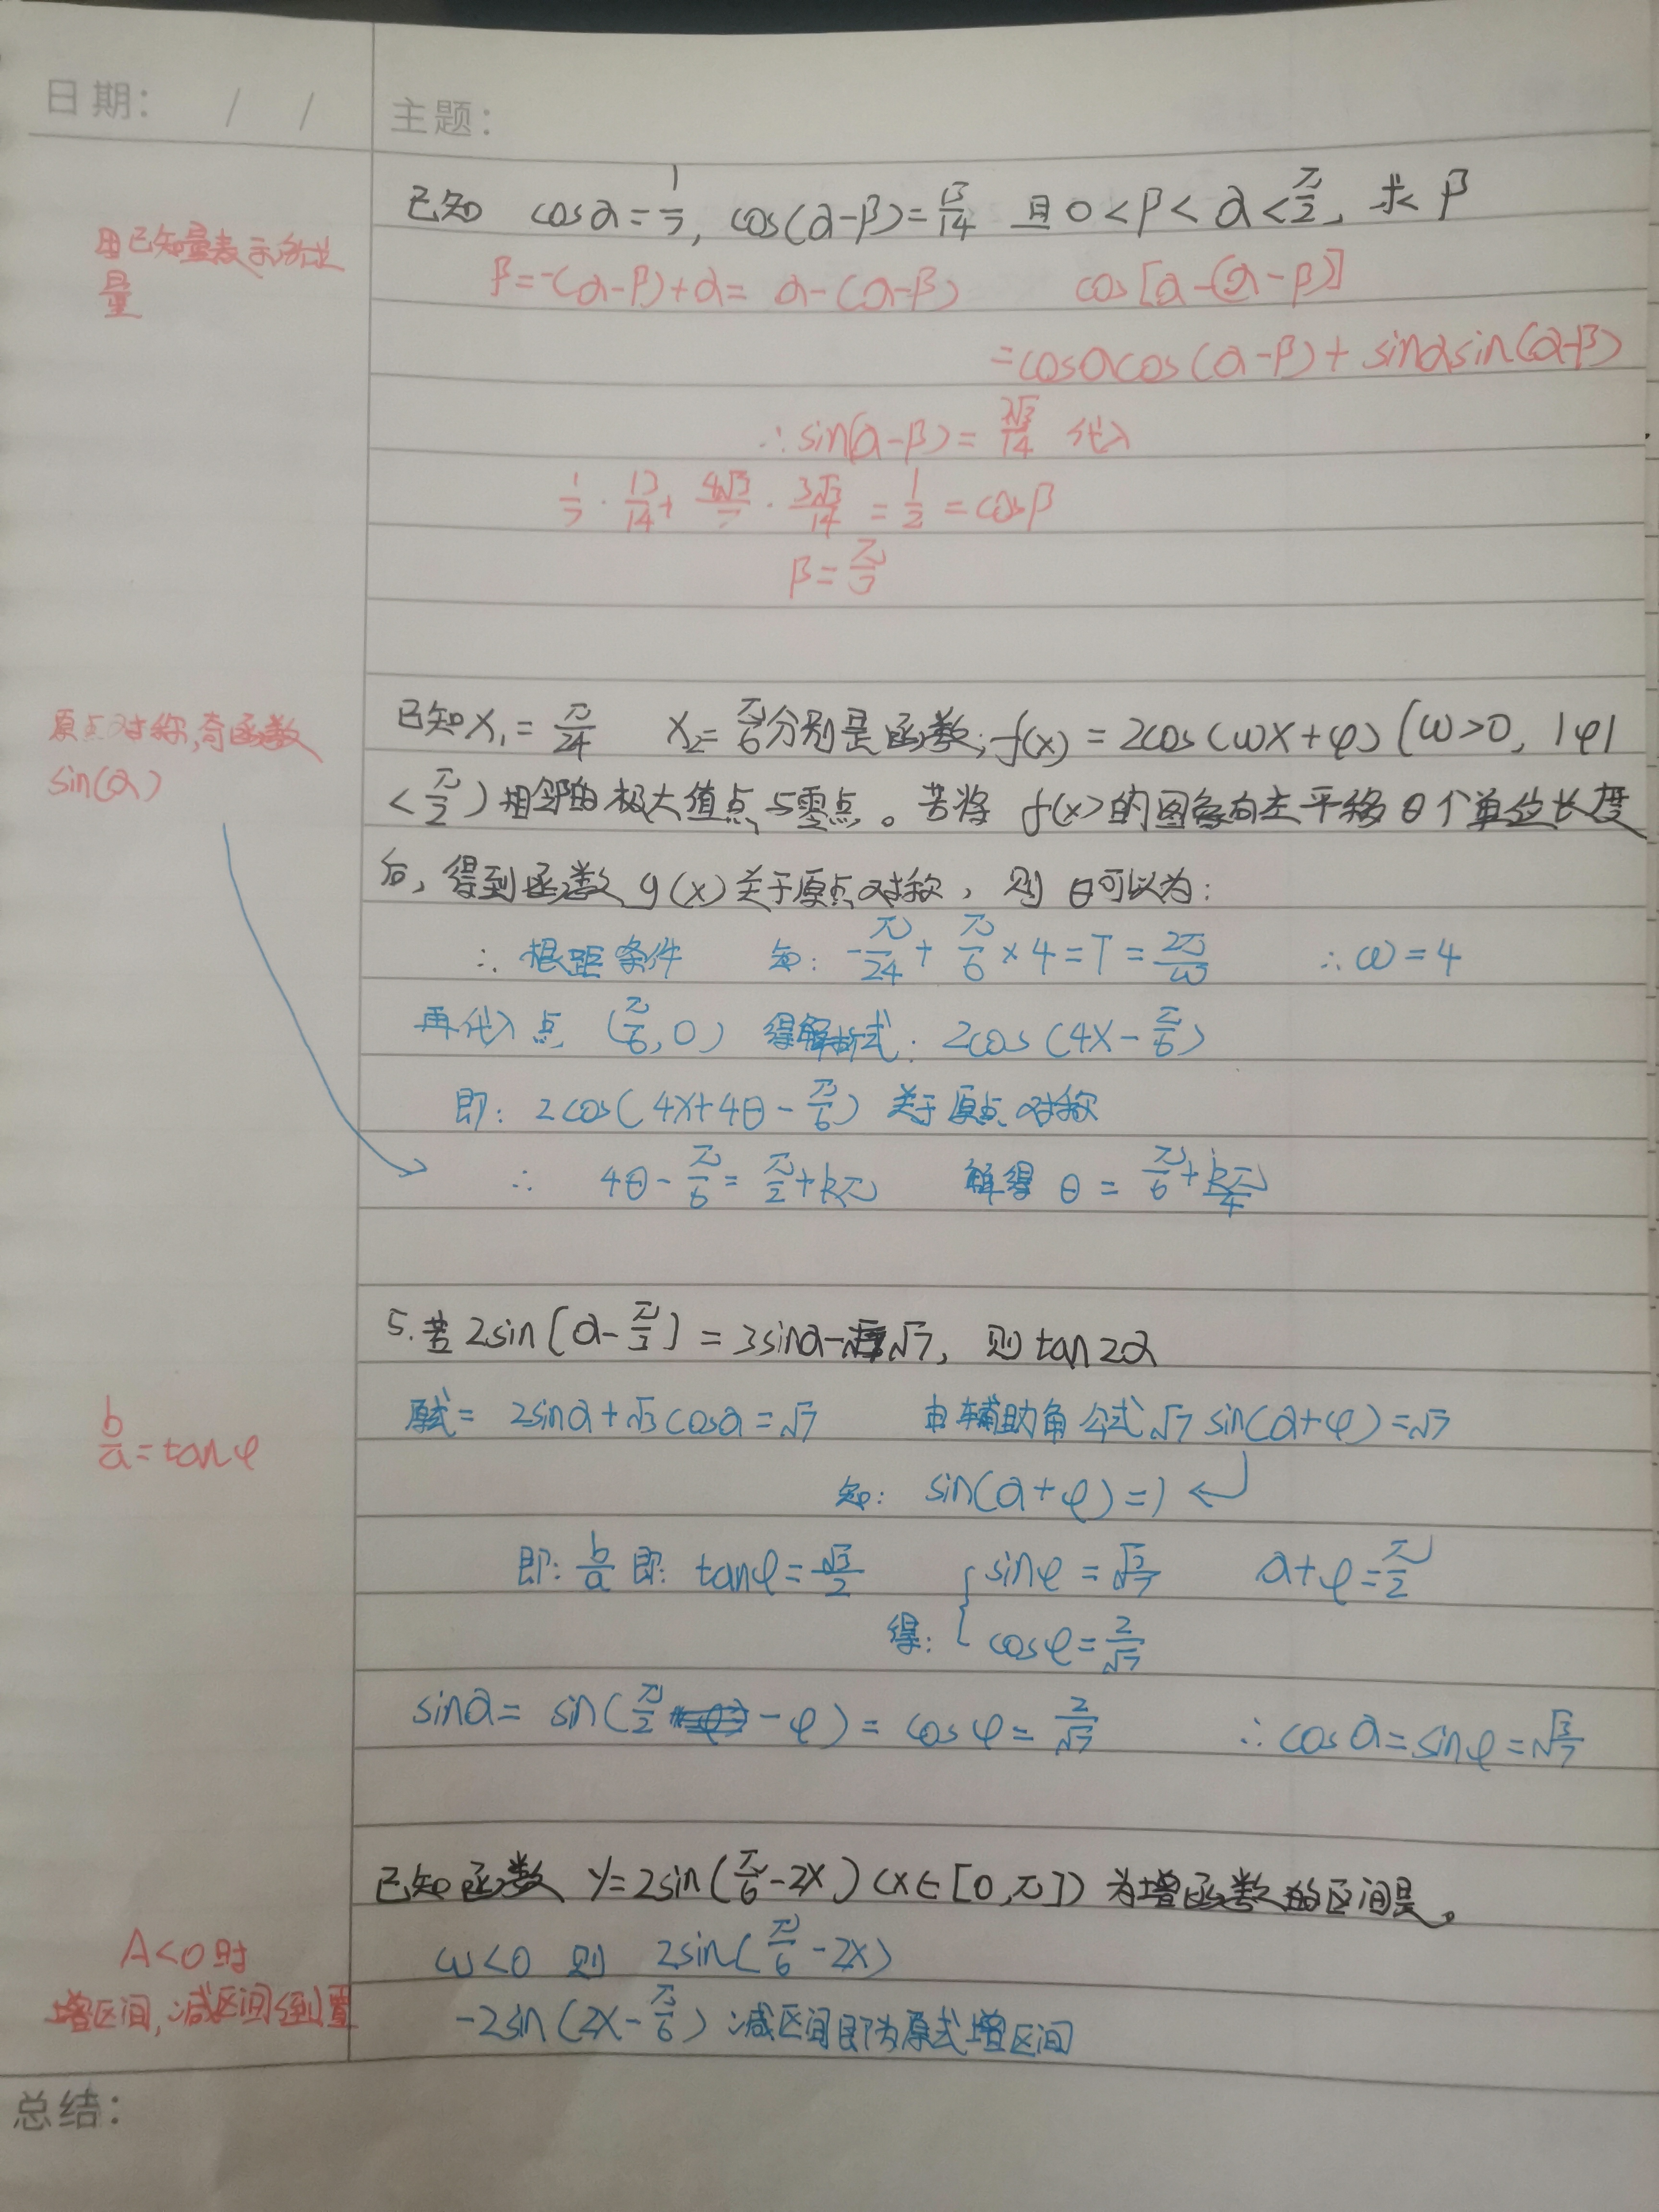 日期: / /
主题:
已知 cosα=1/7, cos(α-β)=13/14 且0<β<α<π/2, 求β
用已知量表示所求
量
β=-(α-β)+α= α-(α-β) cos[α-(α-β)]
=cosαcos(α-β)+sinαsin(α-β)
∴sin(α-β)=3√3/14 代入
1/7·13/14+4√3/7·3√3/14=1/2=cosβ
β=π/3
原点对称,奇函数
sin(α)
已知x₁=π/24 x₂=π/6分别是函数,f(x)=2cos(ωx+φ)(ω>0, |φ|
<π/2)相邻的极大值点与零点。若将 f(x)的图象向左平移θ个单位长度
后,得到函数g(x)关于原点对称,则θ可以为:
∴根距条件 知: -π/24+π/6×4=T=2π/ω ∴ω=4
再代入点 (π/6,0) 得解析式: 2cos(4x-π/6)
即: 2cos(4x+4θ-π/6)关于原点对称
∴ 4θ-π/6=π/2+kπ 解得 θ=π/6+kπ/4
5.若2sin[α-π/3]=3sinα-√7, 则tan2α
b/a=tanφ
原式= 2sinα+√3cosα=√7 由辅助角公式√7sin(α+φ)=√7
知: sin(α+φ)=1
即: b/a 即: tanφ=√3/2 sinφ=√3/7 α+φ=π/2
得: cosφ=2/√7
sinα= sin(π/2-φ)=cosφ=2/√7 ∴cosα=sinφ=√3/7
已知函数 y=2sin(π/6-2x)(x∈[0,π])为增函数的区间是。
A<0时
增区间,减区间倒置
ω<0 则 2sin(π/6-2x)
-2sin(2x-π/6)减区间即为原式增区间
总结: